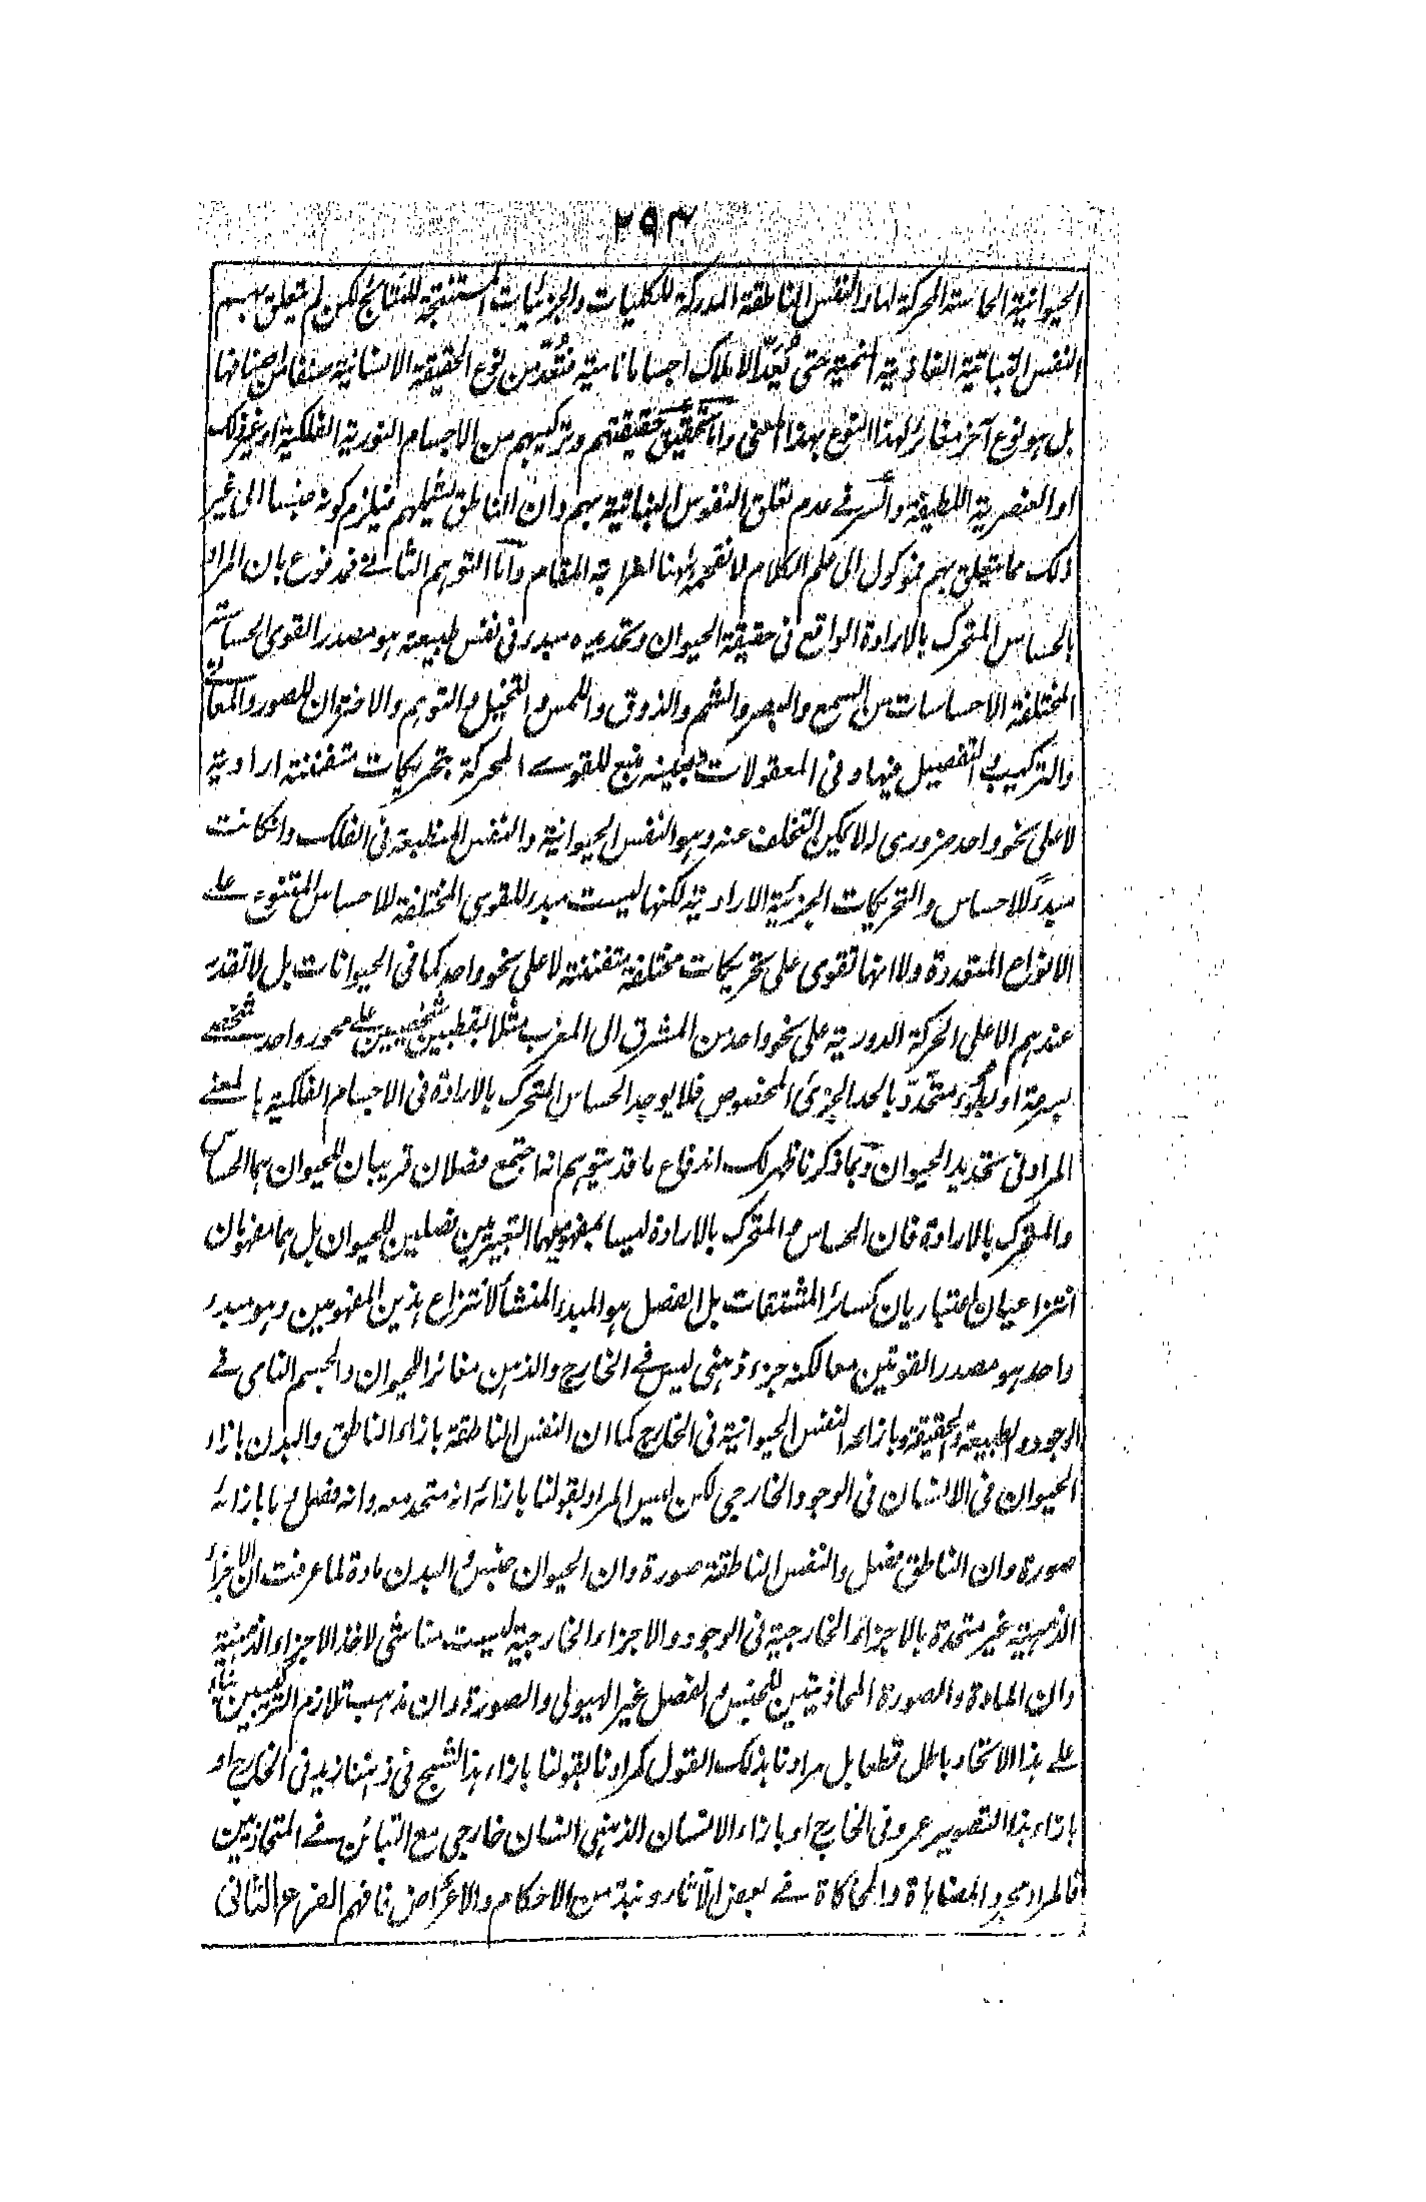 ٢٩٣
الحيوانية الحاسة المحركة لها والنفس الناطقة المدركة للكليات والجزئيات المستنتجة للنتائج لكن لم تتعلق بهم
النفس النباتية الغاذية المنمية حتى تُعَدّ الاملاك اجساما نامية فتُعَدّ من نوع الحقيقة الانسانية صنفا من اصنافها
بل هو نوع آخر مغائر لهذا النوع بهذا المعنى واما تحقيق حقيقتهم وتركيبهم من الاجسام النورية الفلكية او غير ذلك
او العنصرية اللطيفة والسر فى عدم تعلق النفوس النباتية بهم وان الناطق يشملهم فيلزم كونه جنسا الى غير
ذلك مما يتعلق بهم فموكول الى علم الكلام لا نقحمه ههنا لغرابة المقام واما التوهم الثانى فمدفوع بان المراد
بالحساس المتحرك بالارادة الواقع فى حقيقة الحيوان وتحديده مبدء فى نفس طبيعته هو مصدر القوى الحساسة
المختلفة الاحساسات من السمع والبصر والشم والذوق واللمس والتخيل والتوهم والاختزان للصور والمعانى
والتركيب والتفصيل فيها وفى المعقولات بعينه منبع للقوى المحركة بتحريكات متفننة ارادية
لا على نحو واحد ضرورى له لا يمكن التخلف عنه وهو النفس الحيوانية والنفس المنطبعة فى الفلك وان كانت
مبدءً للاحساس والتحريكات الجزئية الارادية لكنها ليست مبدء للقوى المختلفة للاحساس المتنوع على
الانواع المتعددة ولا انها تقوى على تحريكات مختلفة متفننة لا على نحو واحد كما فى الحيوانات بل لا تقدر
عندهم الا على الحركة الدورية على نحو واحد من المشرق الى المغرب مثلا بقطبين شخصيين على محور واحد شخصى
بسرعة او بطوء متحدّد بالحد الجزئى المخصوص فلا يوجد الحساس المتحرك بالارادة فى الاجسام الفلكية بالمعنى
المراد فى تحديد الحيوان وبما ذكرنا ظهر لك اندفاع ما قد يتوهم انه اجتمع فصلان قريبان للحيوان هما الحساس
والمتحرك بالارادة فان الحساس والمتحرك بالارادة ليسا بمفهوميهما التعبيريين فصلين للحيوان بل هما مفهومان
انتزاعيان اعتباريان كسائر المشتقات بل الفصل هو المبدء المنشأ لانتزاع هذين المفهومين وهو مبدء
واحد هو مصدر القوتين معا لكنه جزء ذهنى ليس فى الخارج والذهن مغائرا للحيوان والجسم النامى فى
الوجود والطبيعة والحقيقة وبازائه النفس الحيوانية فى الخارج كما ان النفس الناطقة بازاء الناطق والبدن بازاء
الحيوان فى الانسان فى الوجود الخارجى لكن ليس المراد بقولنا بازائه انه متحد معه وانه فصل وما بازائه
صورة وان الناطق فصل والنفس الناطقة صورة وان الحيوان جنس والبدن مادة لما عرفت ان الاجزاء
الذهنية غير متحدة بالاجزاء الخارجية فى الوجود والاجزاء الخارجية ليست مناشى لاخذ الاجزاء الذهنية
وان المادة والصورة المحاذيتين للجنس والفصل غير الهيولى والصورة وان مذهب تلازم التركيبين بناء
على هذا الاتحاد باطل قطعا بل مرادنا بذلك القول كمرادنا بقولنا بازاء هذا الشبح فى ذهننا زيد فى الخارج او
بازاء هذا التصوير عمرو فى الخارج او بازاء الانسان الذهنى انسان خارجى مع التبائن فى المتحاذيين
فالمراد مجرد المضاهاة والمحاكاة فى بعض الآثار ونبذة من الاحكام والاعراض فافهم الفرع الثانى